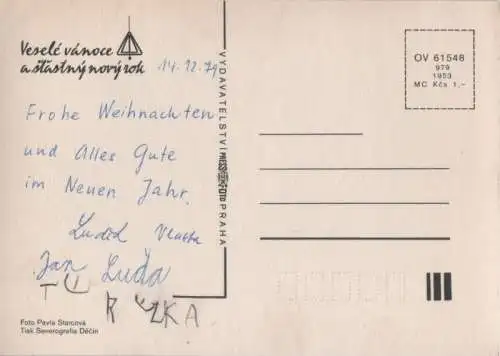 Veselé vánoce
a šťastný nový rok
14.12.79
Frohe Weihnachten
und Alles Gute
im Neuen Jahr.
Luděk Vlasta
Jan Luďa
Foto Pavla Starcová
Tisk Severografia Děčín
VYDAVATELSTVÍ PRESSFOTO PRAHA
OV 61548
979
1953
MC Kčs 1,-